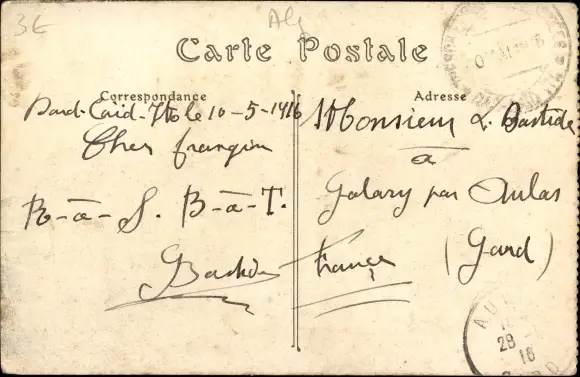 3€
Alg
Carte Postale
Correspondance
Adresse
Caïd-Ito le 10-5-1916
Cher frangin
R-a-S. B-a-T.
Bastide
Monsieur L. Bastide
a
Galary par Aulas
(Gard)
France
AU
28
16